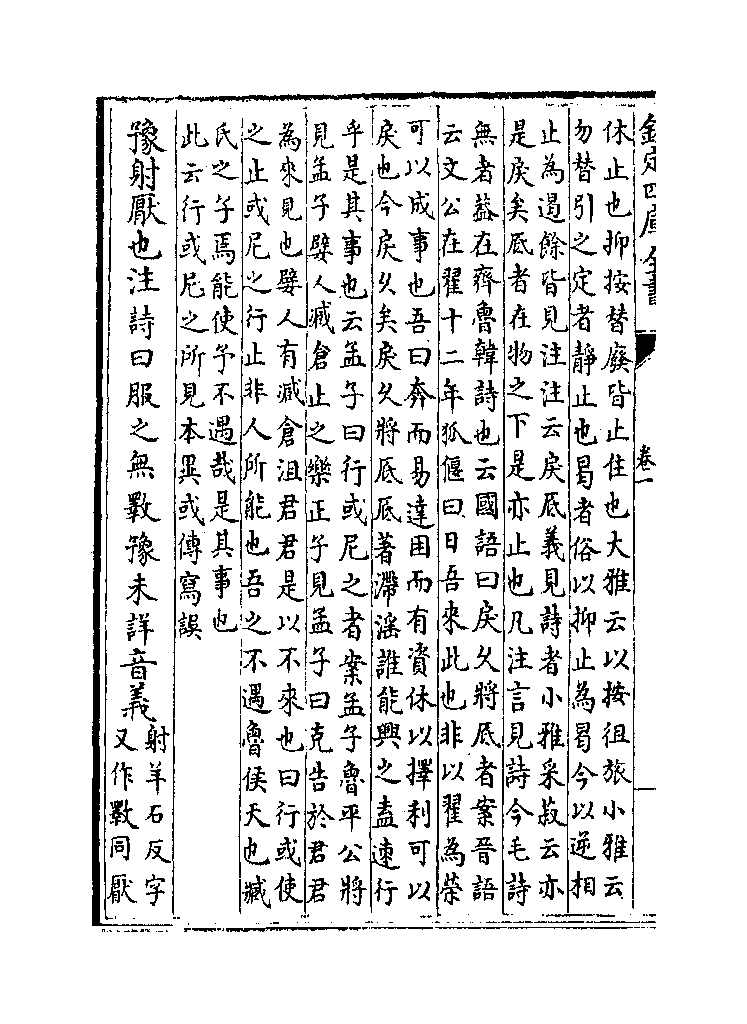 欽定四庫全書
卷一
休止也抑按替廢皆止住也大雅云以按徂旅小雅云
勿替引之定者靜止也曷者俗以抑止為曷今以逆相
止為遏餘皆見注注云戾底義見詩者小雅采菽云亦
是戾矣底者在物之下是亦止也凡注言見詩今毛詩
無者蓋在齊魯韓詩也云國語曰戾久將底者案晉語
云文公在翟十二年狐偃曰日吾來此也非以翟為榮
可以成事也吾曰奔而易達困而有資休以擇利可以
戾也今戾久矣戾久將底底著滯淫誰能興之盍速行
乎是其事也云孟子曰行或尼之者案孟子魯平公將
見孟子嬖人臧倉止之樂正子見孟子曰克告於君君
為來見也嬖人有臧倉沮君君是以不來也曰行或使
之止或尼之行止非人所能也吾之不遇魯侯天也臧
氏之子焉能使予不遇哉是其事也
此云行或尼之所見本異或傳寫誤
豫射厭也注詩曰服之無斁豫未詳音義
射羊石反字
又作斁同厭